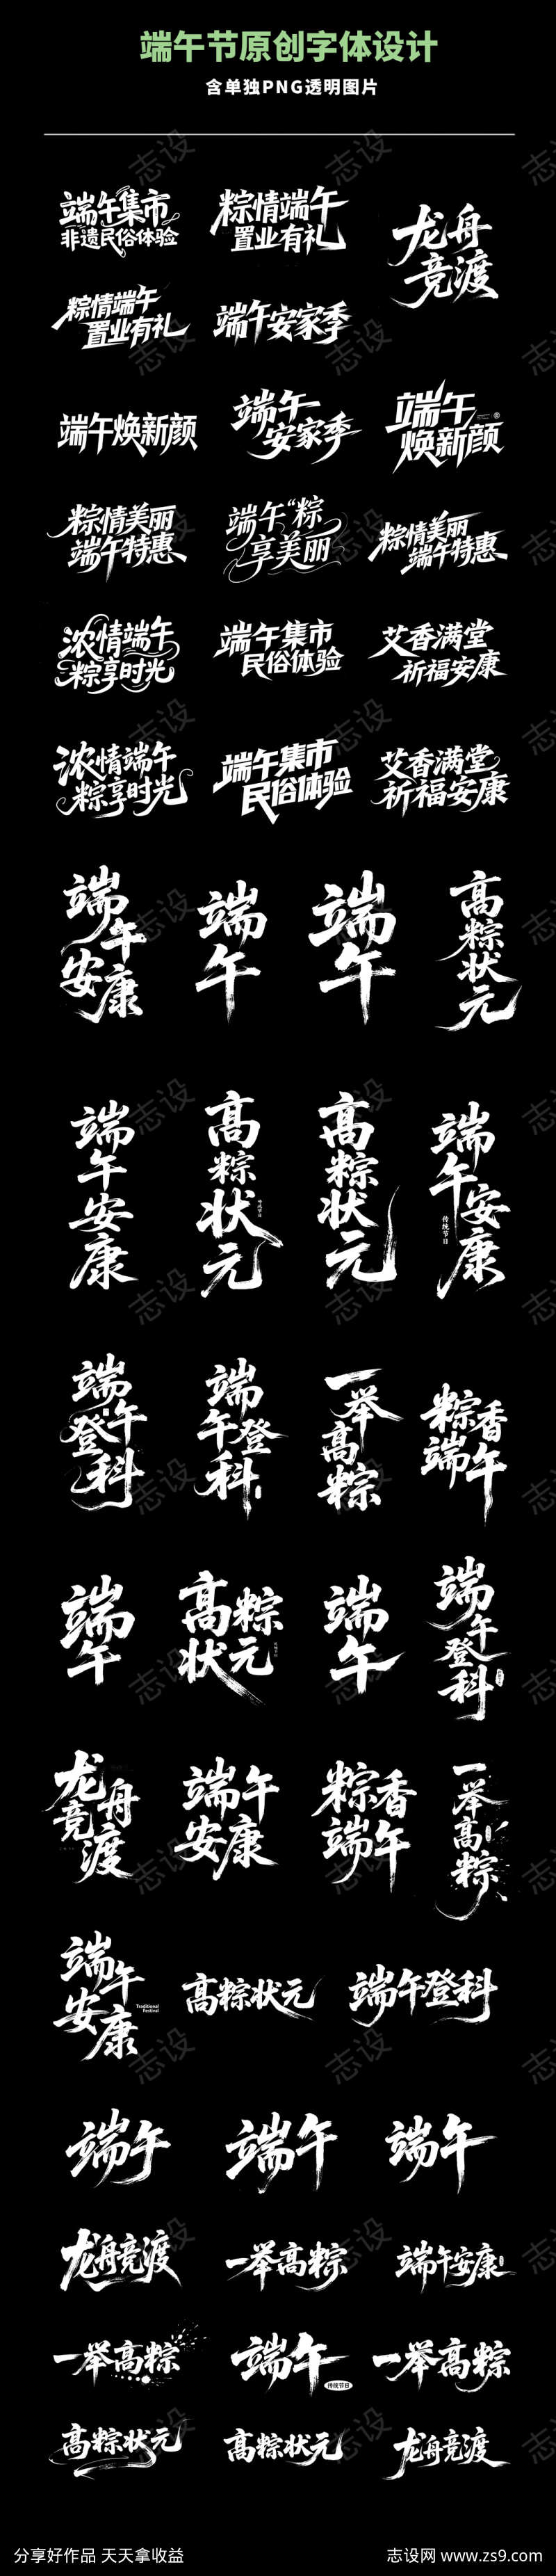 端午节原创字体设计
含单独PNG透明图片
端午集市
非遗民俗体验
粽情端午
置业有礼
龙舟
竞渡
粽情端午
置业有礼
端午安家季
端午焕新颜
端午
安家季
端午
焕新颜
粽情美丽
端午特惠
端午“粽
享美丽
粽情美丽
端午特惠
浓情端午
粽享时光
端午集市
民俗体验
艾香满堂
祈福安康
浓情端午
粽享时光
端午集市
民俗体验
艾香满堂
祈福安康
端午安康
端午
端午
高粽状元
端午安康
高粽状元
高粽状元
端午安康
传统节日
端午登科
端午登科
一举高粽
粽香
端午
端午
高粽
状元
端午
端午登科
龙舟竞渡
端午
安康
粽香
端午
一举高粽
端午安康
Traditional
Festival
高粽状元
端午登科
端午
端午
端午
龙舟竞渡
一举高粽
端午安康
一举高粽
端午
传统节日
一举高粽
高粽状元
高粽状元
龙舟竞渡
分享好作品 天天拿收益
志设网 www.zs9.com
志设